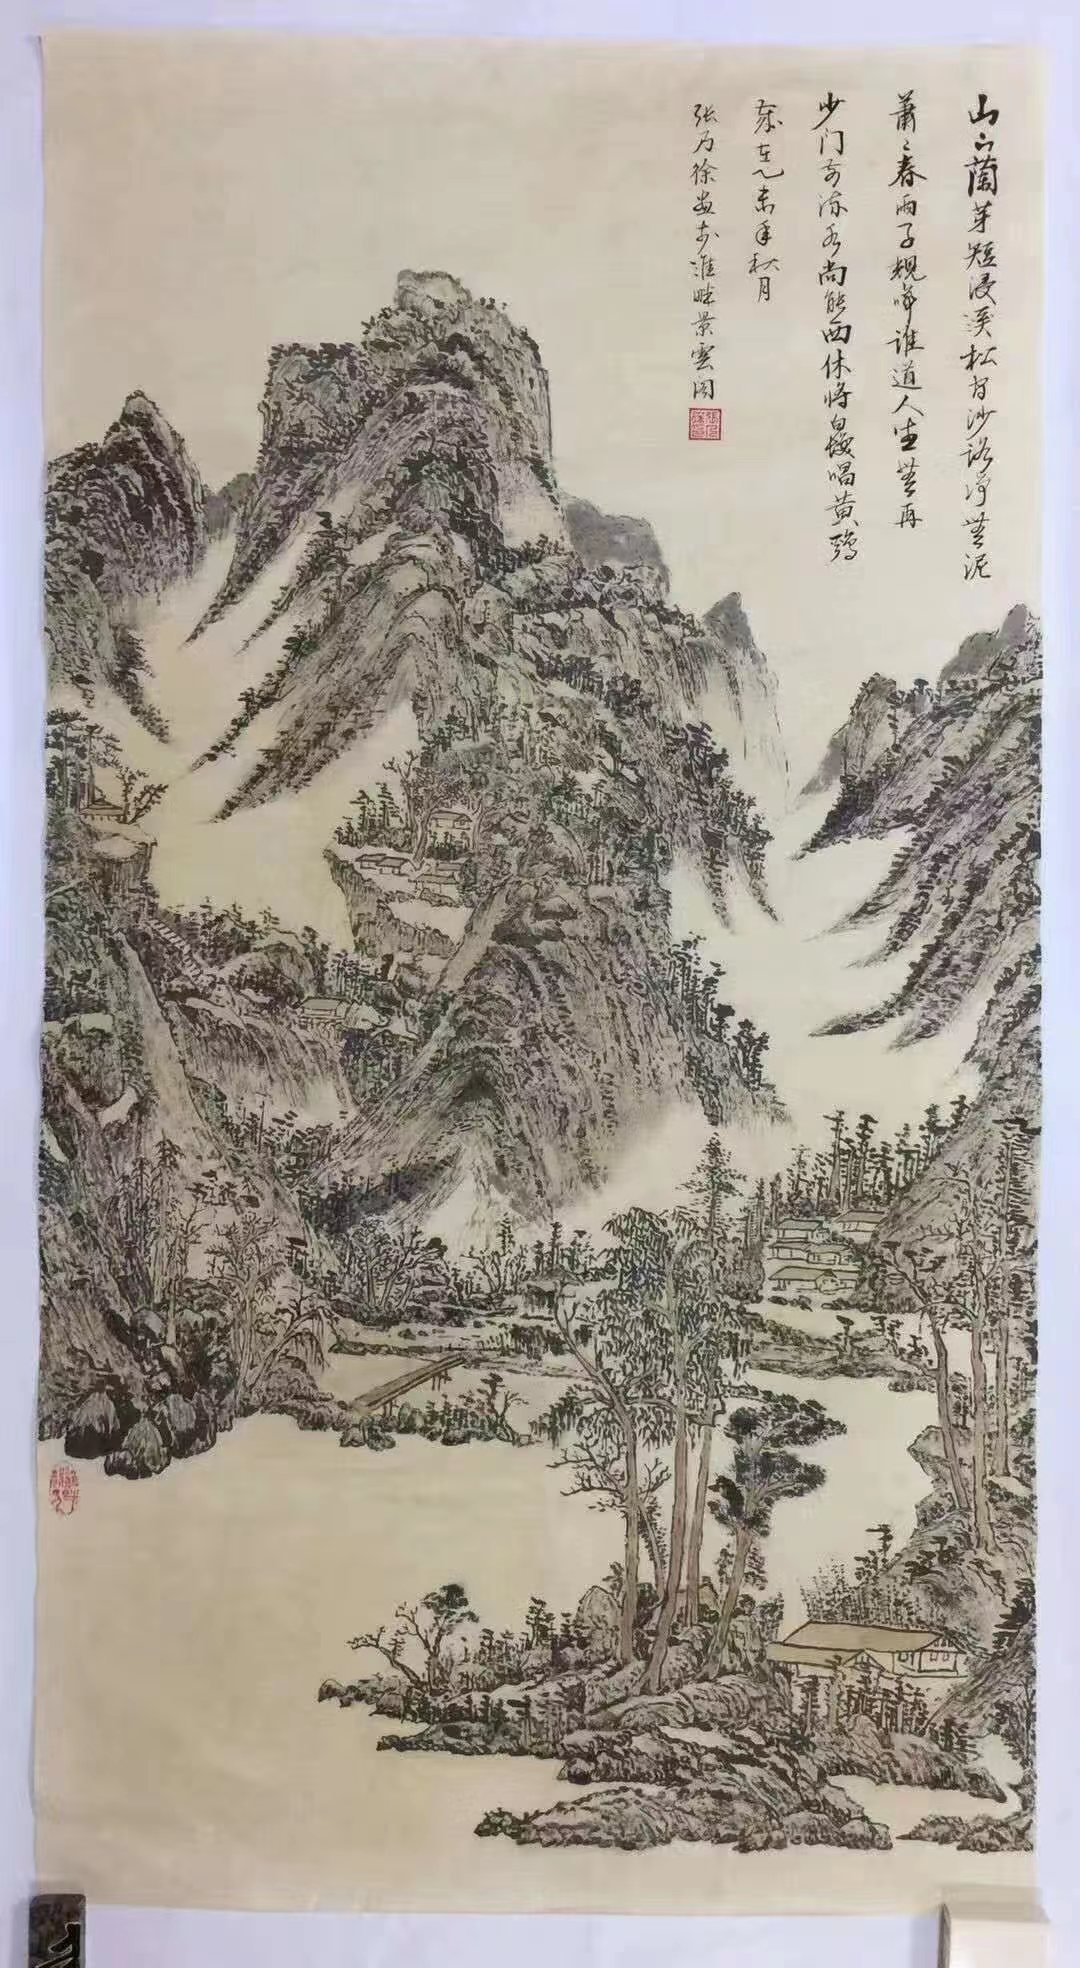 山下蘭芽短浸溪松间沙路净無泥
萧〻春雨子规啼谁道人生無再
少门前流水尚能西休将白髮唱黄鸡
岁在乙未年秋月
张乃徐画于淮畔景雲阁